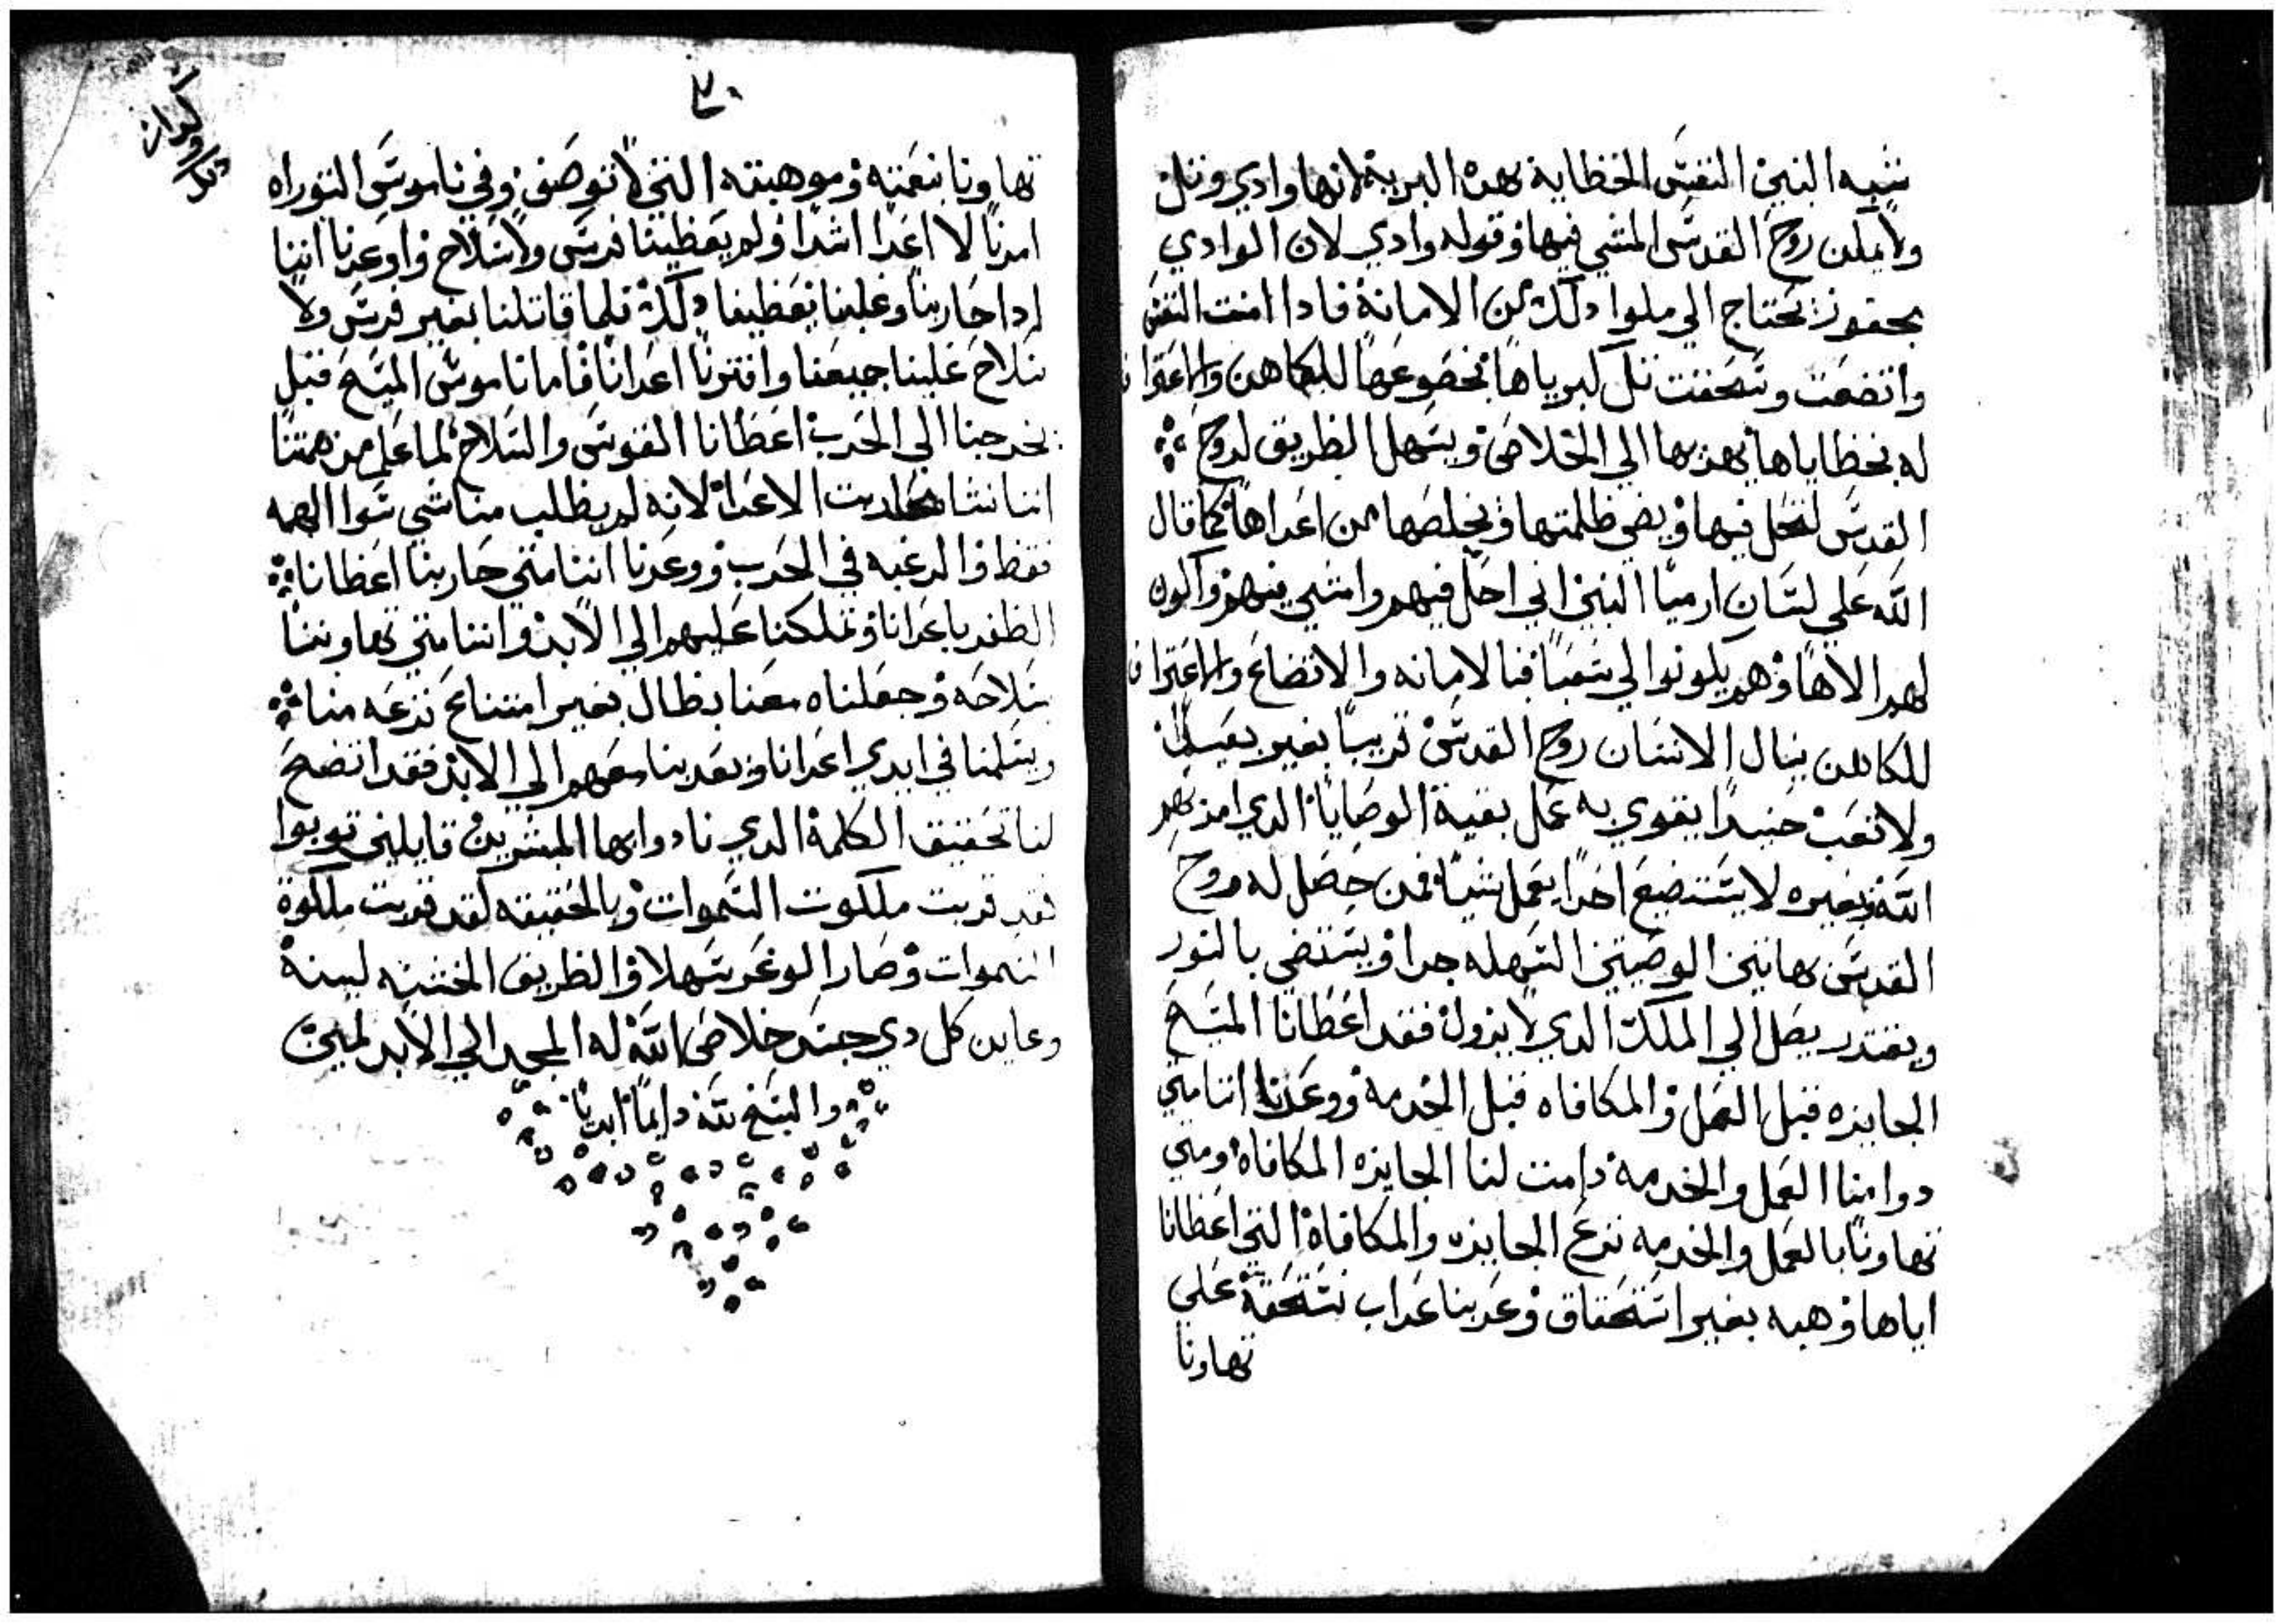 شبه النبي النفس الخظايه بهده البرية لانها وادي وتل
ولا يمكن روح القدس المشي فيها وقوله وادي لان الوادي
بحفور تحتاج الي ملوا ودلك من الامانة فادا امنت النفس
واتضعت وتسحقت تل كبرياها بخضوعها للكاهن والاعتراف
له بخظاياها بهديها الي الخلاص ويسهل الظريق لروح
القدس لتحل فيها ويضي ظلمتها ويخلصها من اعداها كما قال
الله علي لسان ارميا النبي اني احل فيهم وامشي فيهم واكون
لهم الاها وهم يكونوا لي شعبا فبالامانه والاتضاع والاعتراف
للكاهن ينال الانسان روح القدس قريبا بغير
ولا تعب حنيدا يقوي به عمل بقية الوصايا الدي امر بهم
الله وبغيره لا يستضيع احدا يعمل شيا فمن حصل له روح
القدس بهاتين الوصيتين السهله جدا ويستضي بالنور
ويقتدر يصل الي الملك الدي لا يزول فقد اعظانا المسيح
الجايزه قبل العمل والمكافاه قبل الخدمة ووعدنا اننا متي
دوامنا العمل والخدمة دامت لنا الجايزه المكافاة ومتي
تهاونا بالعمل والخدمه نزع الجايزه والمكافاة التي اعظانا
اياها وهبه بغير استحقاق وعدبنا عداب نستحقه علي
تهاونا
٧٠
تهاونا بنعمته وموهبته التي لا توصف وفي ناموس التوراه
امرنا لا اعدا اشدا ولم يعظينا فرس ولا سلاح واوعدنا اننا
ادا حاربنا وغلبنا يعظينا دلك فلما قاتلنا بغير فرس ولا
سلاح غلبنا جميعنا وافترنا اعدانا فاما ناموس المسيح قبل
يخرجنا الي الحرب اعظانا الفرس والسلاح لما علم من همتنا
اننا نشا محاربت الاعدا لانه لم يظلب منا شي سوا الهمه
فقظ والرغبه في الحرب ووعدنا اننا متي حاربنا اعظانا
الظفر باعدانا وتملكنا عليهم الي الابد واننا متي تهاوننا
بسلاحه وجعلناه معنا بظال بغير امتناع نزعه منا
ويسلمنا في ايدي اعدانا ويعدبنا معهم الي الابد فقد اتضح
لنا تحقيق الكلمة الدي نادوا بها المبشرين قايلين توبوا
فقد قربت ملكوت السموات وبالحقيقه لقد قربت ملكوة
السموات وصار الوعر سهلا والظريق الخشنه لينة
وعاين كل دي جسد خلاص الله له المجد الي الابد امين
والسبح لله دايما ابديا